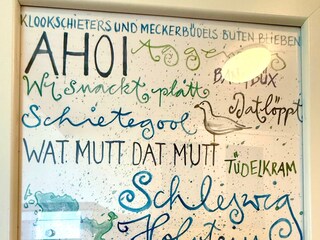 KLOOKSCHIETERS UND MECKERBÜDELS BUTEN BLIEBEN
AHOI
Wi snackt platt
Schietegool
Dat löppt
WAT MUTT DAT MUTT
TÜDELKRAM
Schleswig
Holstein